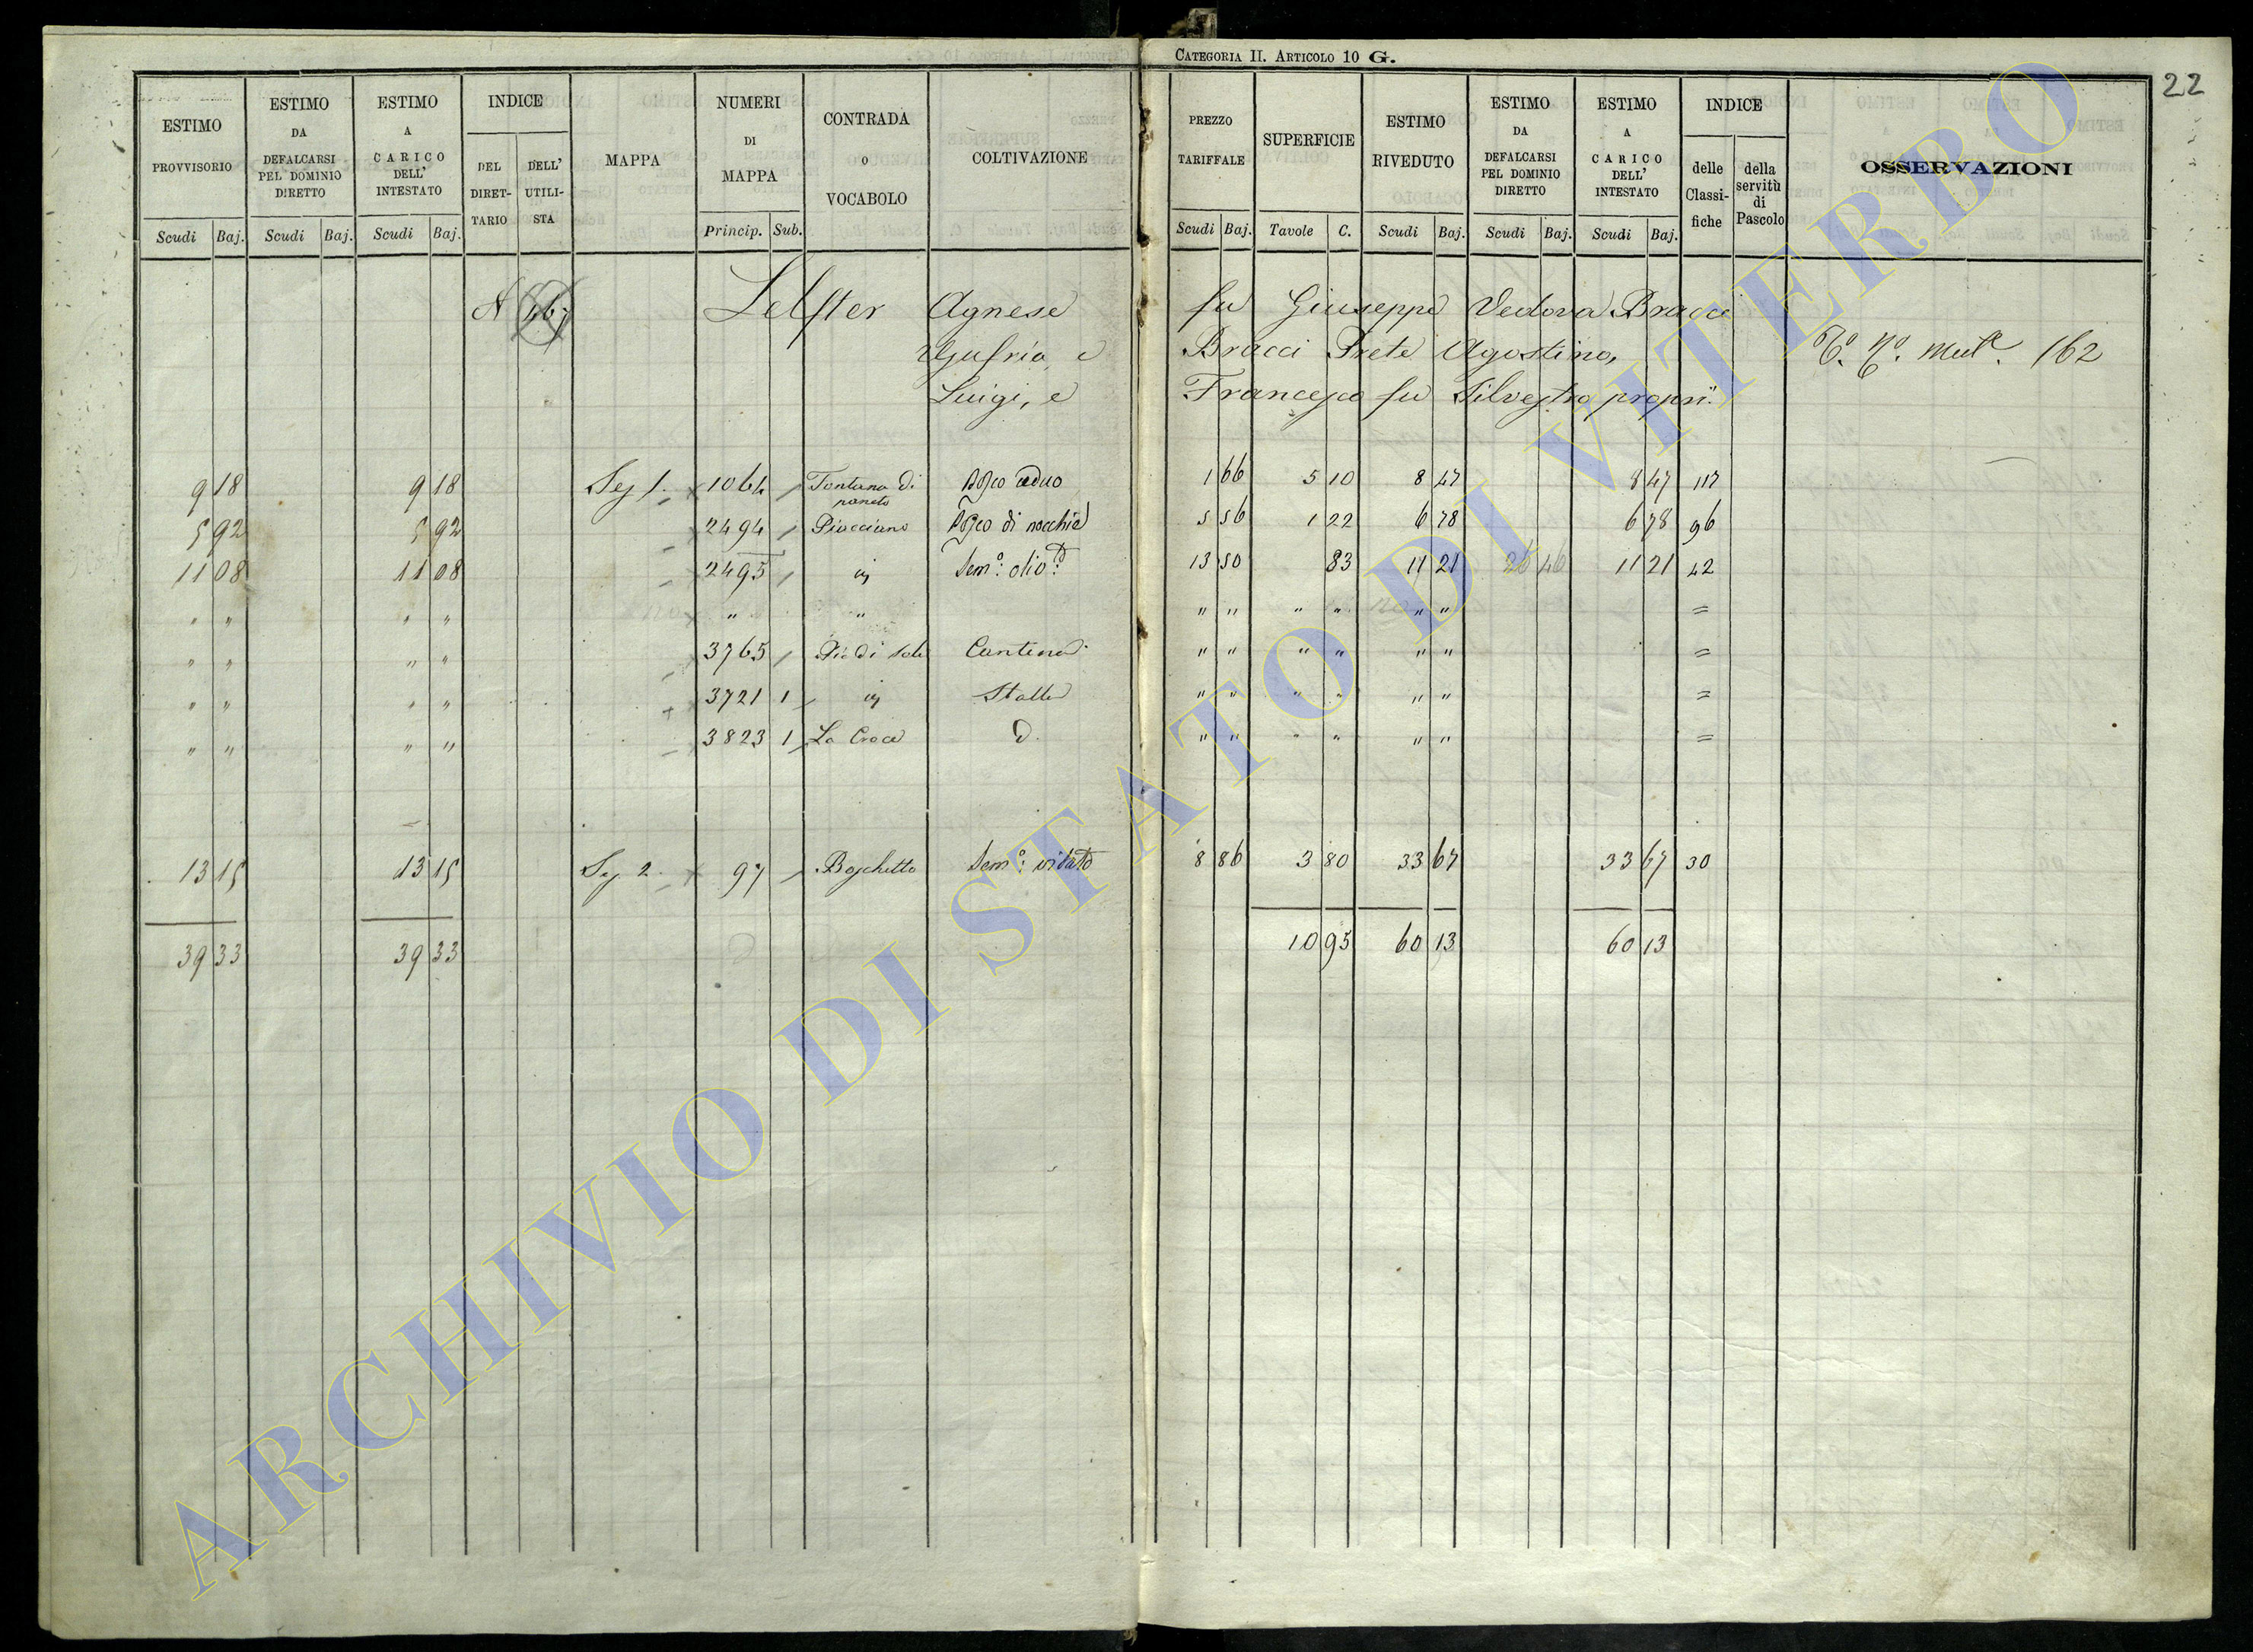 CATEGORIA II. ARTICOLO 10 G.
22
ESTIMO PROVVISORIO Scudi Baj. ESTIMO DA DEFALCARSI PEL DOMINIO DIRETTO Scudi Baj. ESTIMO A CARICO DELL' INTESTATO Scudi Baj. INDICE DEL DIRETTARIO DELL' UTILISTA MAPPA NUMERI DI MAPPA Princip. Sub. CONTRADA O VOCABOLO COLTIVAZIONE PREZZO TARIFFALE Scudi Baj. SUPERFICIE Tavole C. ESTIMO RIVEDUTO Scudi Baj. ESTIMO DA DEFALCARSI PEL DOMINIO DIRETTO Scudi Baj. ESTIMO A CARICO DELL' INTESTATO Scudi Baj. INDICE delle Classifiche della servitù di Pascolo OSSERVAZIONI
Agnese fu Giuseppe Vedova Bracci
e Bracci Prete Agostino, 162
Luigi, e Francesco fu Silvestro propri
9 18 9 18 Sez 1. 1064 Fontana di Bosco ceduo 1 66 5 10 8 47 8 47 117
5 92 5 92 2494 Piacciano Bosco di nocchie 5 56 1 22 6 78 6 78 96
11 08 11 08 2495 Sem.o 13 50 83 11 21 26 46 11 21 42
" " " " " " " " " " " " =
" " " " 3765 Cantina " " " " " " =
" " " " 3721 1 Stalla " " " " " " =
" " " " 3823 1 La Croce " " " " " " =
13 15 13 15 Sez 2. 97 Boschetto Sem.o vitato 8 86 3 80 33 67 33 67 30
39 33 39 33 10 95 60 13 60 13
ARCHIVIO DI STATO DI VITERBO